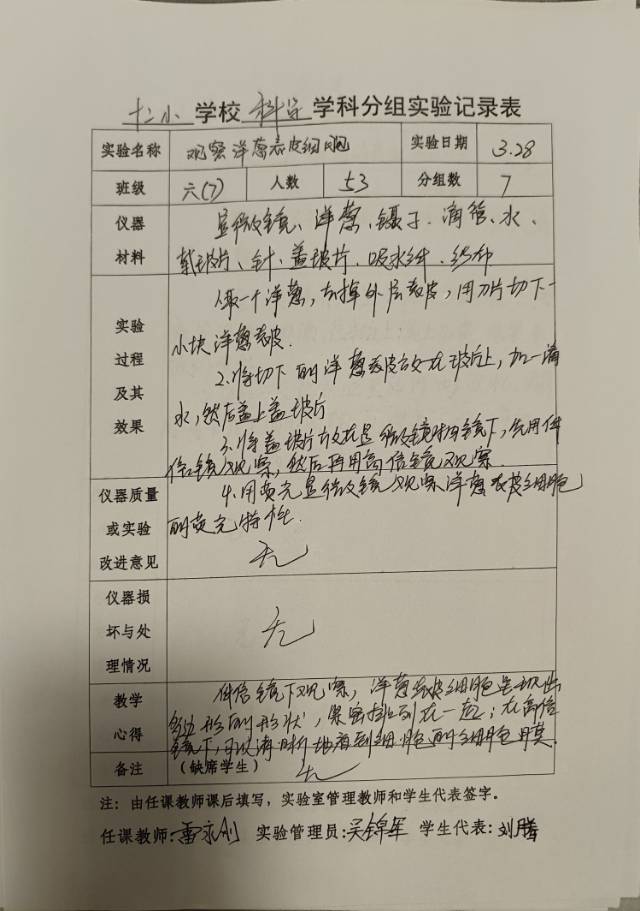 十二小 学校 科学 学科分组实验记录表
实验名称 观察洋葱表皮细胞 实验日期 3.28
班级 六(7) 人数 53 分组数 7
仪器 材料
显微镜、洋葱、镊子、滴管、水、
载玻片、针、盖玻片、吸水纸、纱布
实验 过程 及其 效果
1.取一个洋葱,去掉外层表皮,用刀片切下一
小块洋葱表皮.
2.将切下的洋葱表皮放在玻片上,加一滴
水,然后盖上盖玻片
3.将盖玻片放在显微镜物镜下,先用低
倍镜观察,然后再用高倍镜观察.
4.用荧光显微镜观察洋葱表皮细胞
的荧光特性.
仪器质量 或实验 改进意见
无
仪器损 坏与处 理情况
无
教学 心得
低倍镜下观察,洋葱表皮细胞呈
多边形的形状,紧密排列在一起;在高倍
镜下,可以清晰地看到细胞的细胞膜.
备注 (缺席学生) 无
注:由任课教师课后填写,实验室管理教师和学生代表签字。
任课教师:雷永刚 实验管理员:吴锦年 学生代表:刘腾